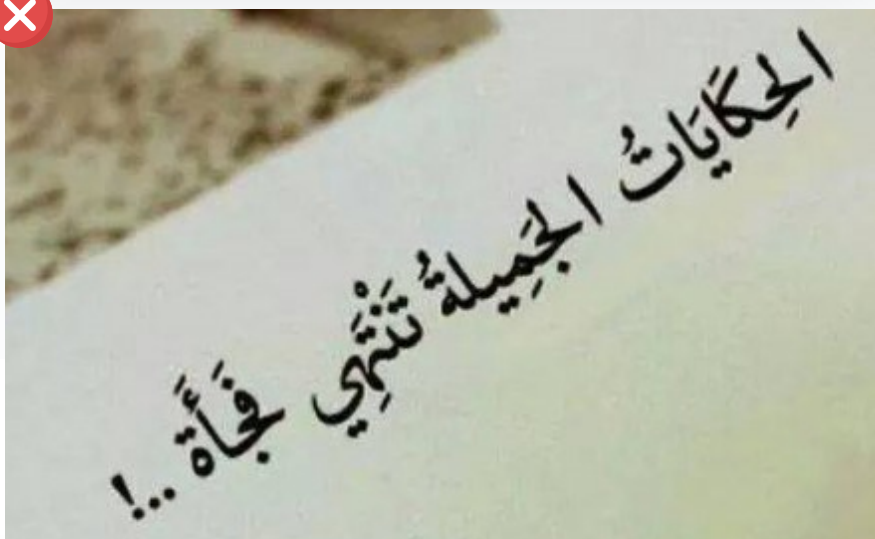 الحِكَايَاتُ الجَمِيلةُ تَنْتَهِي فَجأَةً ...!